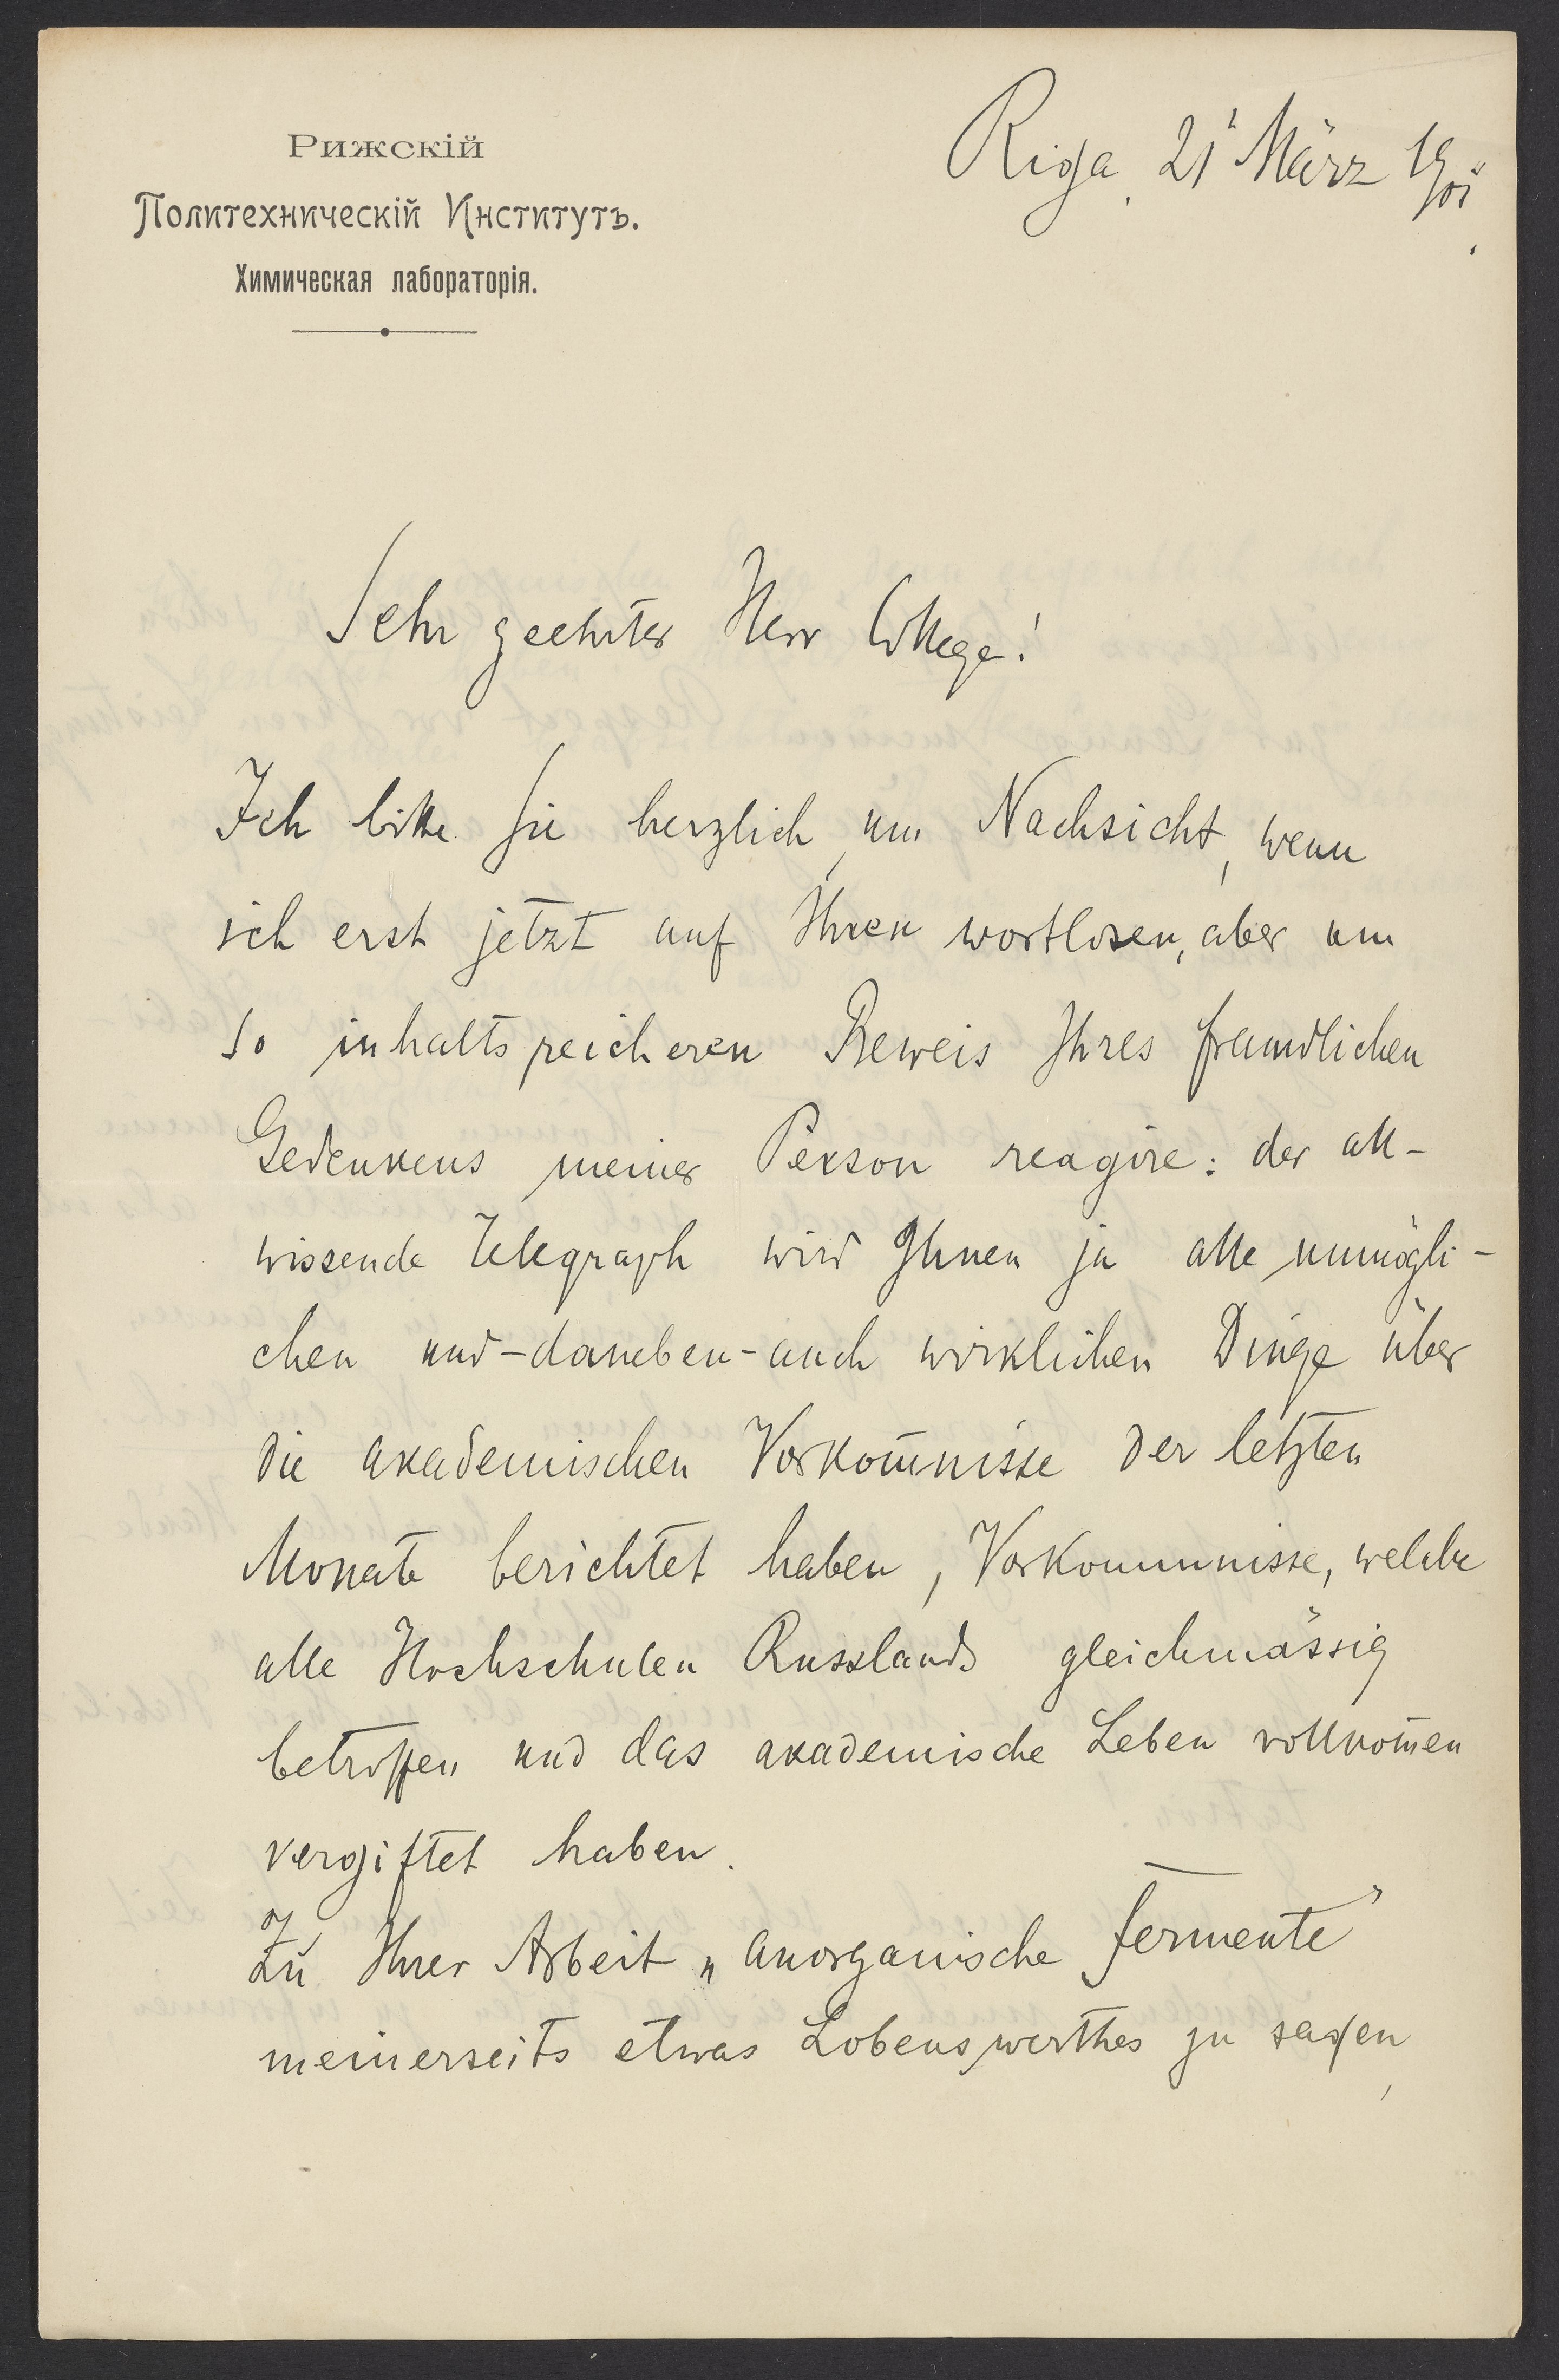 Рижскій
Политехническій Институтъ.
Химическая лабораторія.
Riga, 21 März 1901.
Sehr geehrter Herr College!
Ich bitte Sie herzlich, um Nachsicht, wenn
ich erst jetzt auf Ihren wortlosen, aber um
so inhaltsreicheren Beweis Ihres freundlichen
Gedenkens meiner Person reagire: der all-
wissende Telegraph wird Ihnen ja alle unmögli-
chen und-daneben-auch wirklichen Dinge über
die akademischen Vorkom̅nisse der letzten
Monate berichtet haben, Vorkommnisse, welche
alle Hochschulen Russlands gleichmässig
betroffen und das akademische Leben vollkom̅en
vergiftet haben.
Zu Ihrer Arbeit „Anorganische Fermente"
meinerseits etwas Lobenswerthes zu sagen,